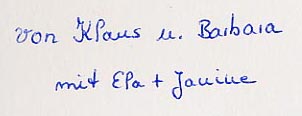 von Klaus u. Barbara
mit Ela + Janine